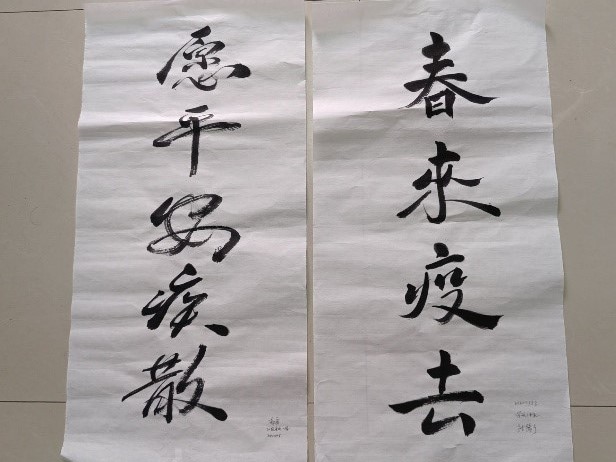 春来疫去
愿平安疾散